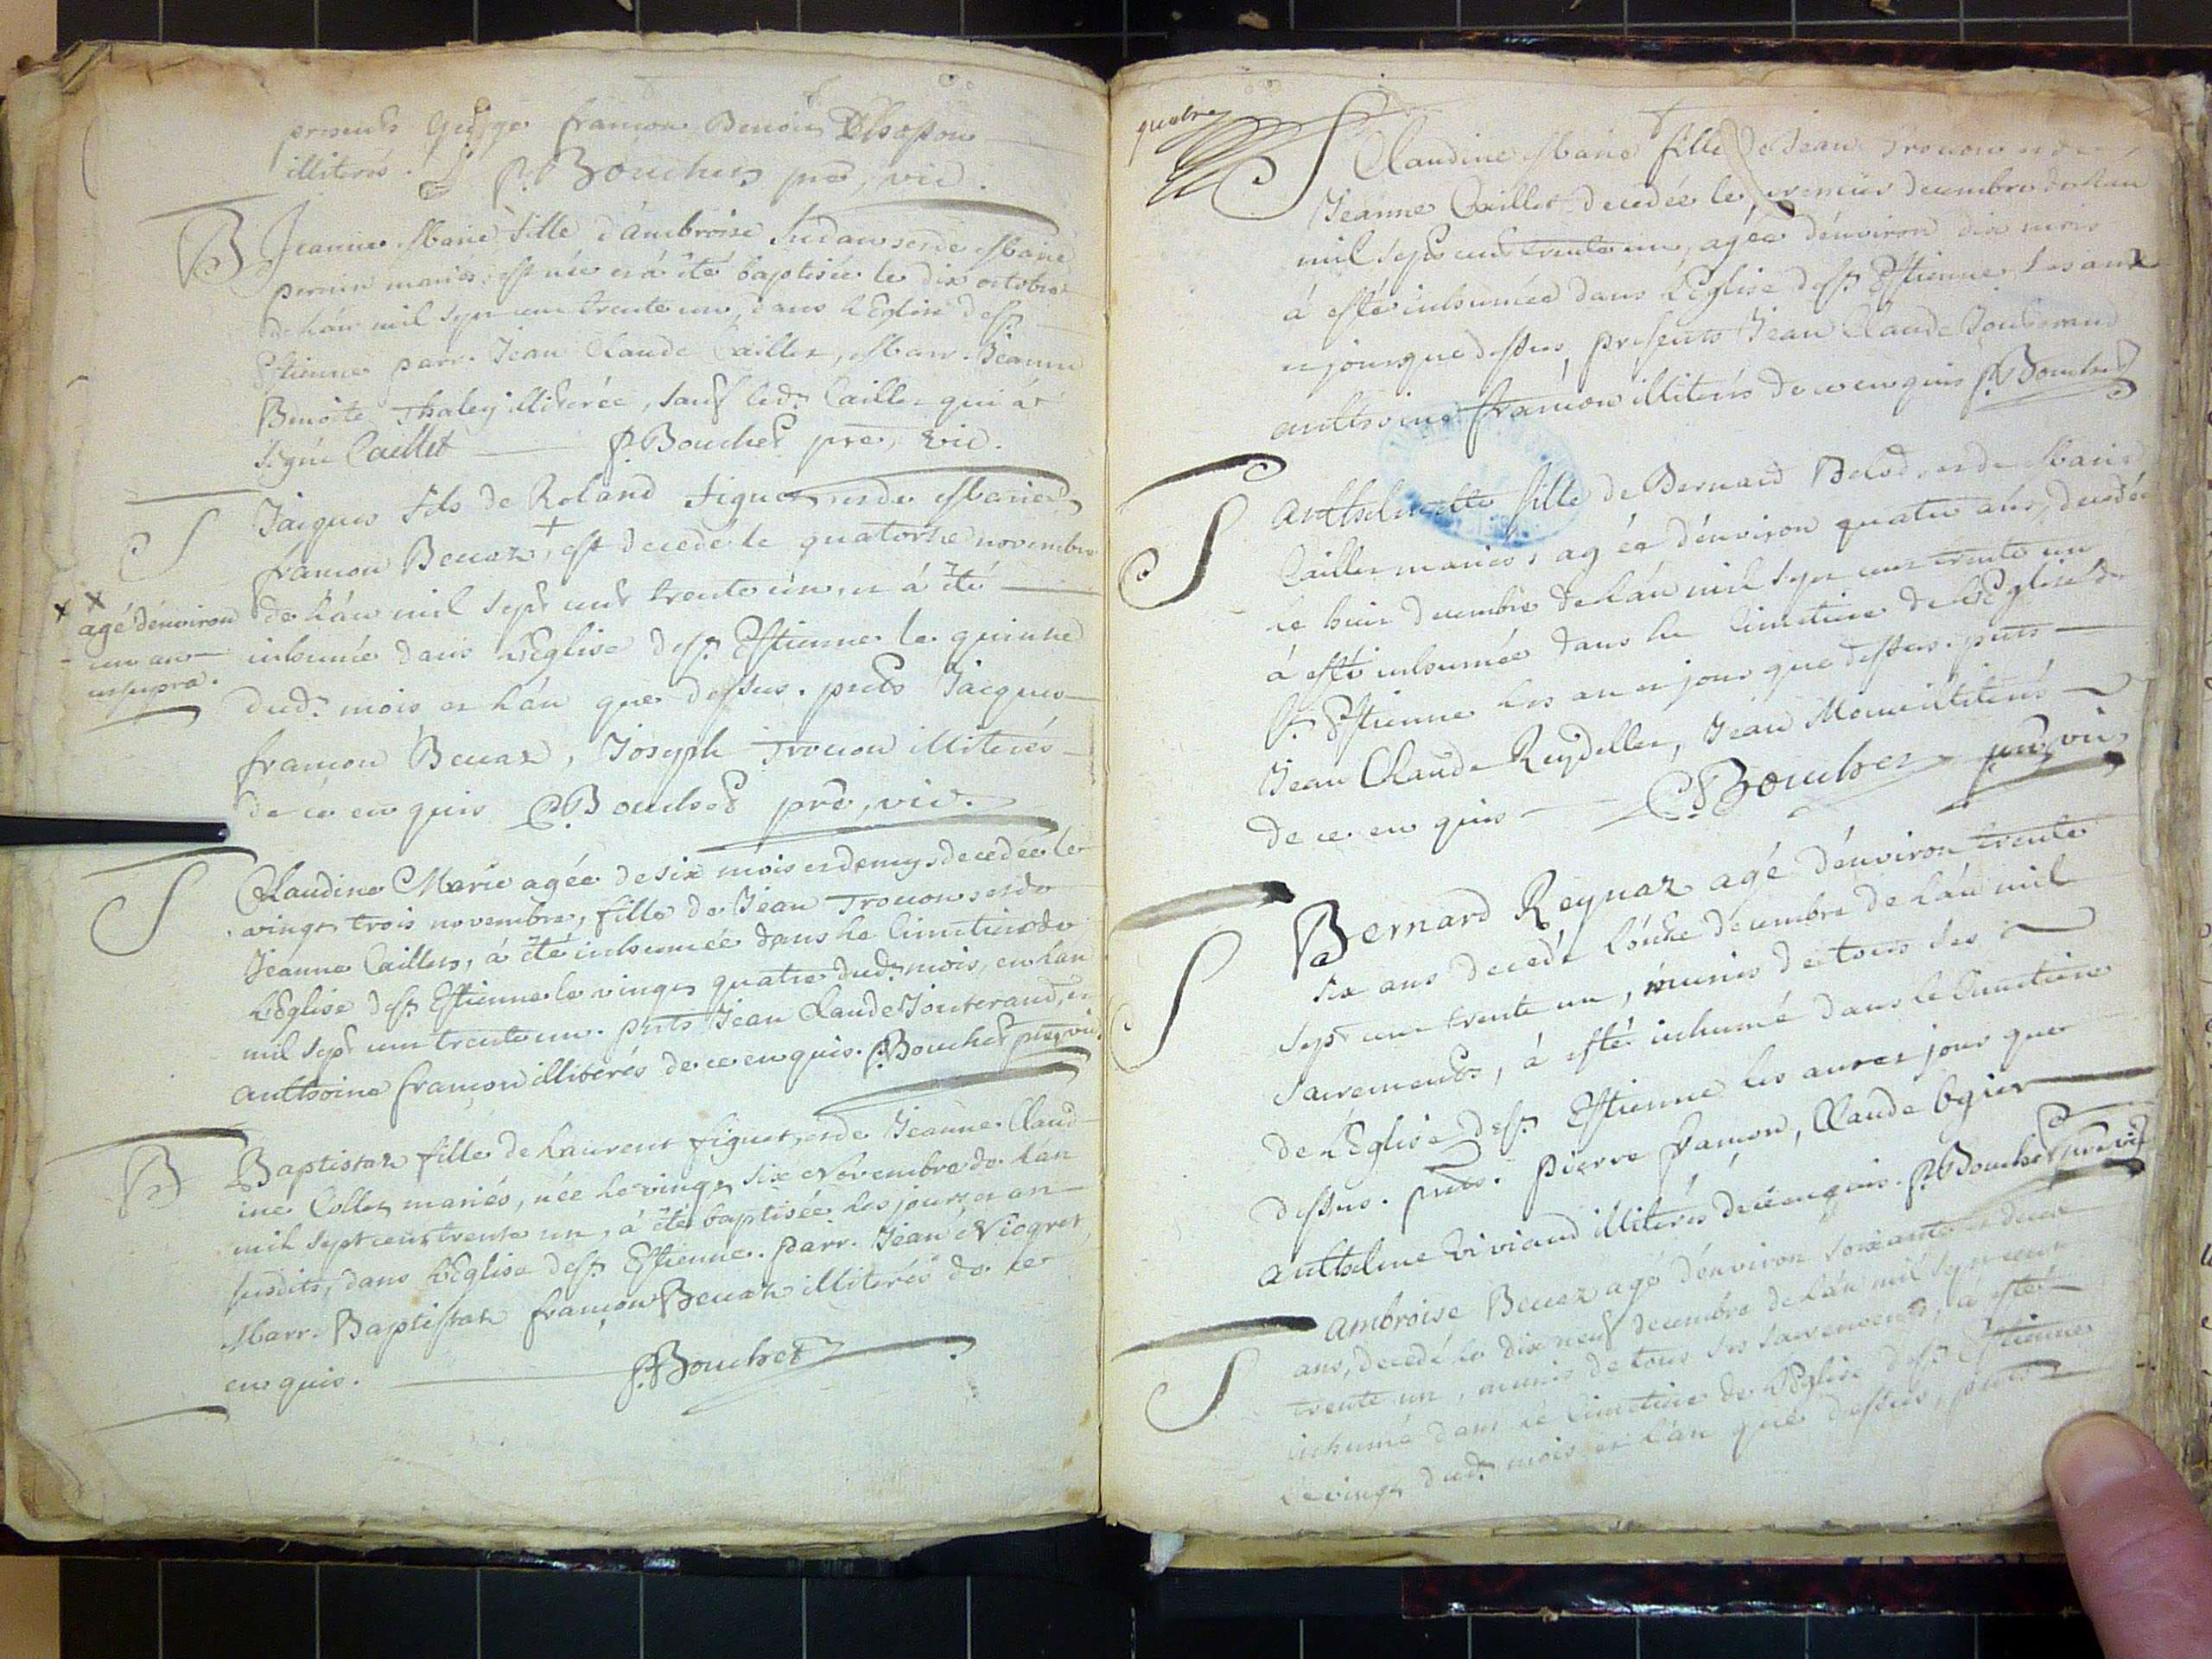 presents françon Benoit
illiterés. P. Bouchet pre, vic.
B Jeanne Marie fille d'ambroise et de Marie
perrin mariés, est née et á été baptisée le dix octobre
de L'án mil sept cent trente un, dans L'Eglise de st
Estienne parr. Jean Claude Caillet, Marr. Jeanne
Benoite Thaley illiterée, sauf led. Caillet qui á
signé Caillet P. Bouchet pre, vic.
S Jacques fils de Roland figuet et de Marie
françon Beuaz, + est decedé le quatorze novembre
de L'án mil sept cent trente un, et á été
x x
agé d'environ
un an
ut supra.
inhumé dans L'Eglise de st Estienne le quinze
dud. mois et L'án que dessus. pnts Jacques
françon Beuaz, Joseph Trouon illiterés
de ce enquis P. Bouchet pre, vic.
S Claudine Marie agée de six mois et demy, decedée le
vingt trois novembre, fille de Jean Trouon et de
Jeanne Caillet, á été inhumée dans le Cimetiere de
L'Eglise de st Estienne le vingt quatre dud. mois, en L'an
mil sept cent trente un. pnts Jean Claude Jouterand, et
Anthoine françon illiterés de ce enquis. P. Bouchet pre, vic.
B Baptistaz fille de Laurent figuet, et de Jeanne Claud-
ine Collet mariés, née le vingt six Novembre de L'án
mil sept cent trente un, á été baptisée les jour et an
susdits, dans L'Eglise de st Estienne. parr. Jean
Marr. Baptistaz françon Beuaz illiterés de ce
enquis. P. Bouchet
quatre
S Claudine Marie fille de Jean Trouon et de
Jeanne Caillet decedée le premier decembre de L'án
mil sept cent trente un, agée d'environ dix mois
á esté inhumée dans L'Eglise de st Estienne les an
et jour que dessus, presents Jean Claude Jouterand
anthoine françon illiterés de ce enquis P. Bouchet
S Anthelmette fille de Bernard et de Marie
Caillet mariés, agée d'environ quatre ans, decedée
le huit decembre de L'án mil sept cent trente un
á esté inhumée dans le Cimetiere de L'Eglise de
st Estienne les an et jour que dessus. pnts
Jean Claude Reydellet, Jean illiterés
de ce enquis P. Bouchet pre, vic
S Bernard Reynaz agé d'environ trente
six ans decedé L'onze decembre de L'án mil
sept cent trente un, munis de tous ses
sacrements, á esté inhumé dans le Cimetiere
de L'Eglise de st Estienne les an et jour que
dessus. pnts. Pierre framon, Claude Ogier
anthelme Viviand illiterés de ce enquis. P. Bouchet pre vic
S Ambroise Beuaz agé d'environ soixante et deux
ans, decedé le dix neuf decembre de L'án mil sept cent
trente un, munis de tous ses sacrements, a esté
inhumé dans le Cimetiere de L'Eglise de st Estienne
le vingt dud. mois et L'án que dessus, pnts